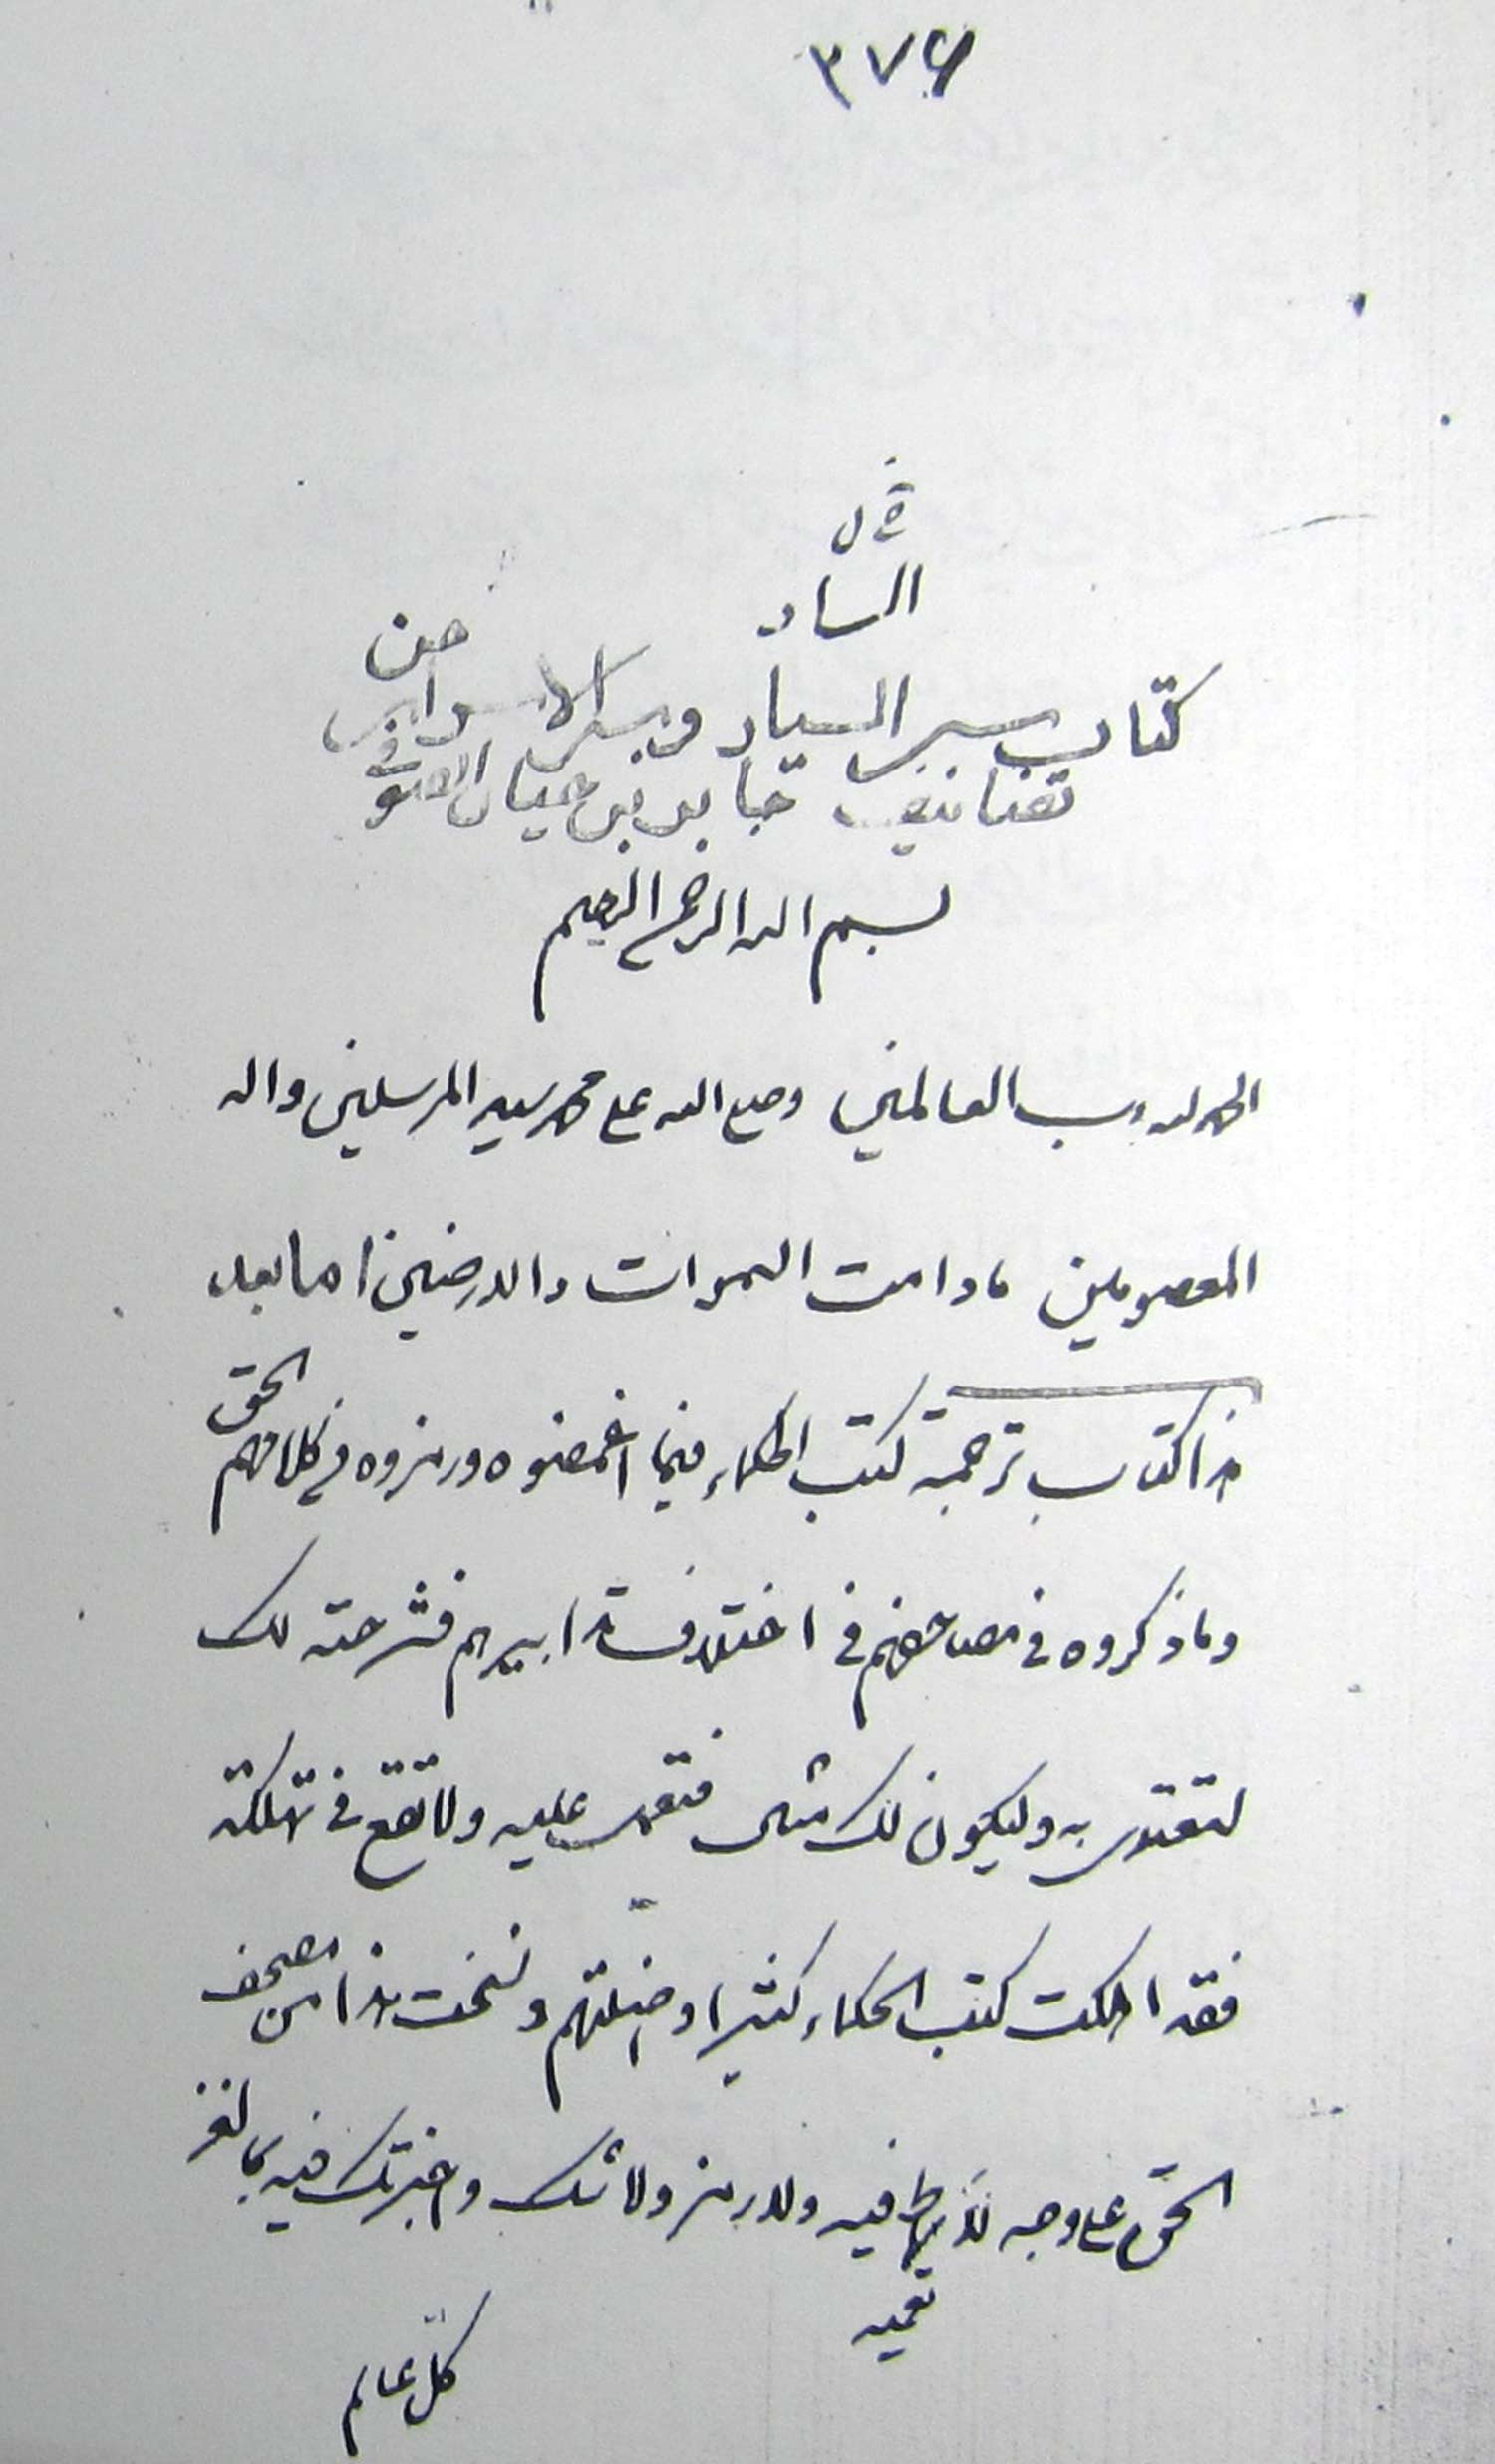 ۳۷۶
السار
كتاب سر السار وسر الاسرار من
تصانيف جابر بن حيان الصوفى
بسم الله الرحمن الرحيم
الحمد لله رب العالمين وصلى الله على محمد سيد المرسلين واله
المعصومين مادامت السموات والارضين اما بعد
هذا كتاب ترجمة كتب الحكماء فيما اغمضوه ورمزوه فى كلامهم الحق
وماذكروه فى مصاحفهم فى اختلاف تدابيرهم فشرحته لك
لتقتدى به وليكون لك مثل فتقيس عليه ولا تقع فى تهلكة
فقد اهلكت كتب الحكماء كثيرا واضلتهم ونسخت هذا من مصحف
الحق على وجه لا فيه ولا رمز ولا شك واخبرتك فيه بما لغز
تعميه
كل عالم